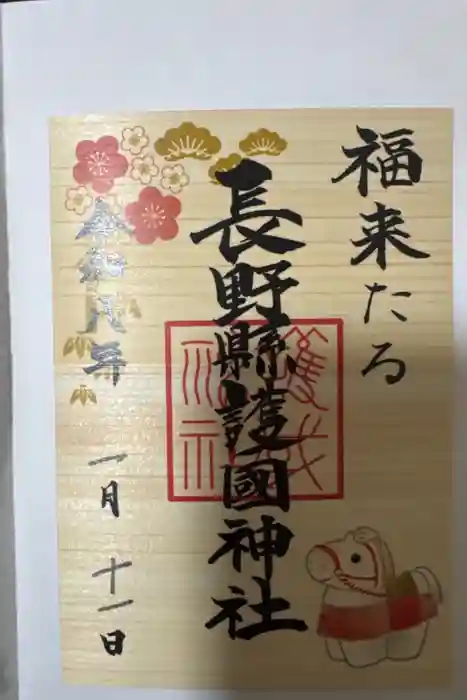 福来たる
長野縣護國神社
令和八年
一月十一日